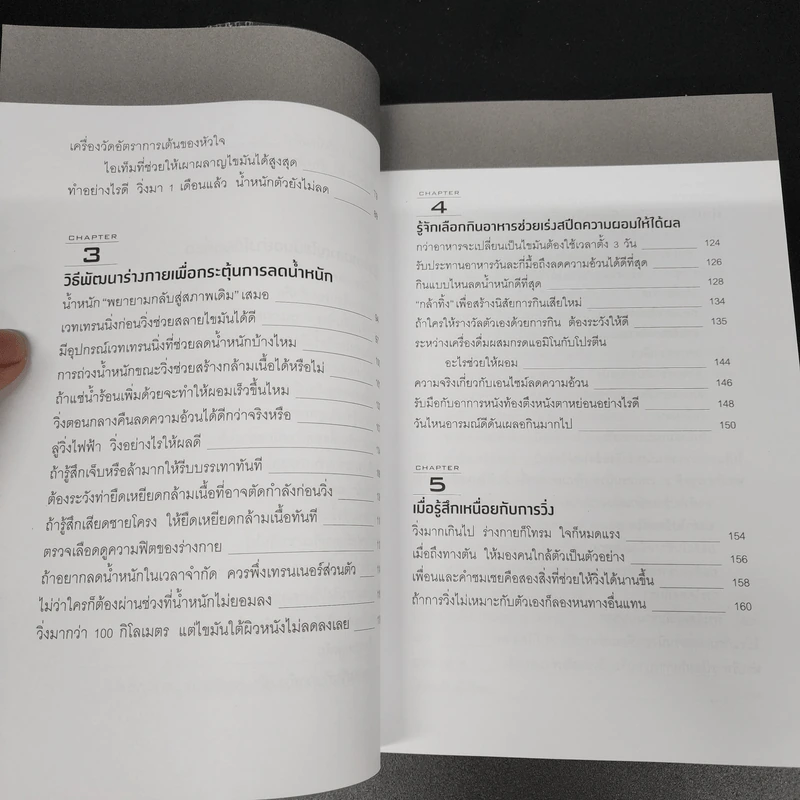 เครื่องวัดอัตราการเต้นของหัวใจ
ไอเท็มที่ช่วยให้เผาผลาญไขมันได้สูงสุด
ทำอย่างไรดี วิ่งมา 1 เดือนแล้ว น้ำหนักตัวยังไม่ลด
CHAPTER
3
วิธีพัฒนาร่างกายเพื่อกระตุ้นการลดน้ำหนัก
น้ำหนัก “พยายามกลับสู่สภาพเดิม” เสมอ
เวทเทรนนิ่งก่อนวิ่งช่วยสลายไขมันได้ดี
มีอุปกรณ์เวทเทรนนิ่งที่ช่วยลดน้ำหนักบ้างไหม
การถ่วงน้ำหนักขณะวิ่งช่วยสร้างกล้ามเนื้อได้หรือไม่
ถ้าแช่น้ำร้อนเพิ่มด้วยจะทำให้ผอมเร็วขึ้นไหม
วิ่งตอนกลางคืนลดความอ้วนได้ดีกว่าจริงหรือ
ลู่วิ่งไฟฟ้า วิ่งอย่างไรให้ผลดี
ถ้ารู้สึกเจ็บหรือล้ามากให้รีบบรรเทาทันที
ต้องระวังท่ายืดเหยียดกล้ามเนื้อที่อาจตัดกำลังก่อนวิ่ง
ถ้ารู้สึกเสียดชายโครง ให้ยืดเหยียดกล้ามเนื้อทันที
ตรวจเลือดดูความฟิตของร่างกาย
ถ้าอยากลดน้ำหนักในเวลาจำกัด ควรพึ่งเทรนเนอร์ส่วนตัว
ไม่ว่าใครก็ต้องผ่านช่วงที่น้ำหนักไม่ยอมลง
วิ่งมากว่า 100 กิโลเมตร แต่ไขมันใต้ผิวหนังไม่ลดลงเลย
CHAPTER
4
รู้จักเลือกกินอาหารช่วยเร่งสปีดความผอมให้ได้ผล
กว่าอาหารจะเปลี่ยนเป็นไขมันต้องใช้เวลาตั้ง 3 วัน 124
รับประทานอาหารวันละกี่มื้อถึงลดความอ้วนได้ดีที่สุด 126
กินแบบไหนลดน้ำหนักดีที่สุด 128
“กล้าทิ้ง” เพื่อสร้างนิสัยการกินเสียใหม่ 134
ถ้าใครให้รางวัลตัวเองด้วยการกิน ต้องระวังให้ดี 135
ระหว่างเครื่องดื่มผสมกรดแอมิโนกับโปรตีน
อะไรช่วยให้ผอม 144
ความจริงเกี่ยวกับเอนไซม์ลดความอ้วน 146
รับมือกับอาการหนังท้องตึงหนังตาหย่อนอย่างไรดี 148
วันไหนอารมณ์ดีดันเผลอกินมากไป 150
CHAPTER
5
เมื่อรู้สึกเหนื่อยกับการวิ่ง
วิ่งมากเกินไป ร่างกายก็โทรม ใจก็หมดแรง 154
เมื่อถึงทางตัน ให้มองคนใกล้ตัวเป็นตัวอย่าง 156
เพื่อนและคำชมเชยคือสองสิ่งที่ช่วยให้วิ่งได้นานขึ้น 158
ถ้าการวิ่งไม่เหมาะกับตัวเองก็ลองหนทางอื่นแทน 160